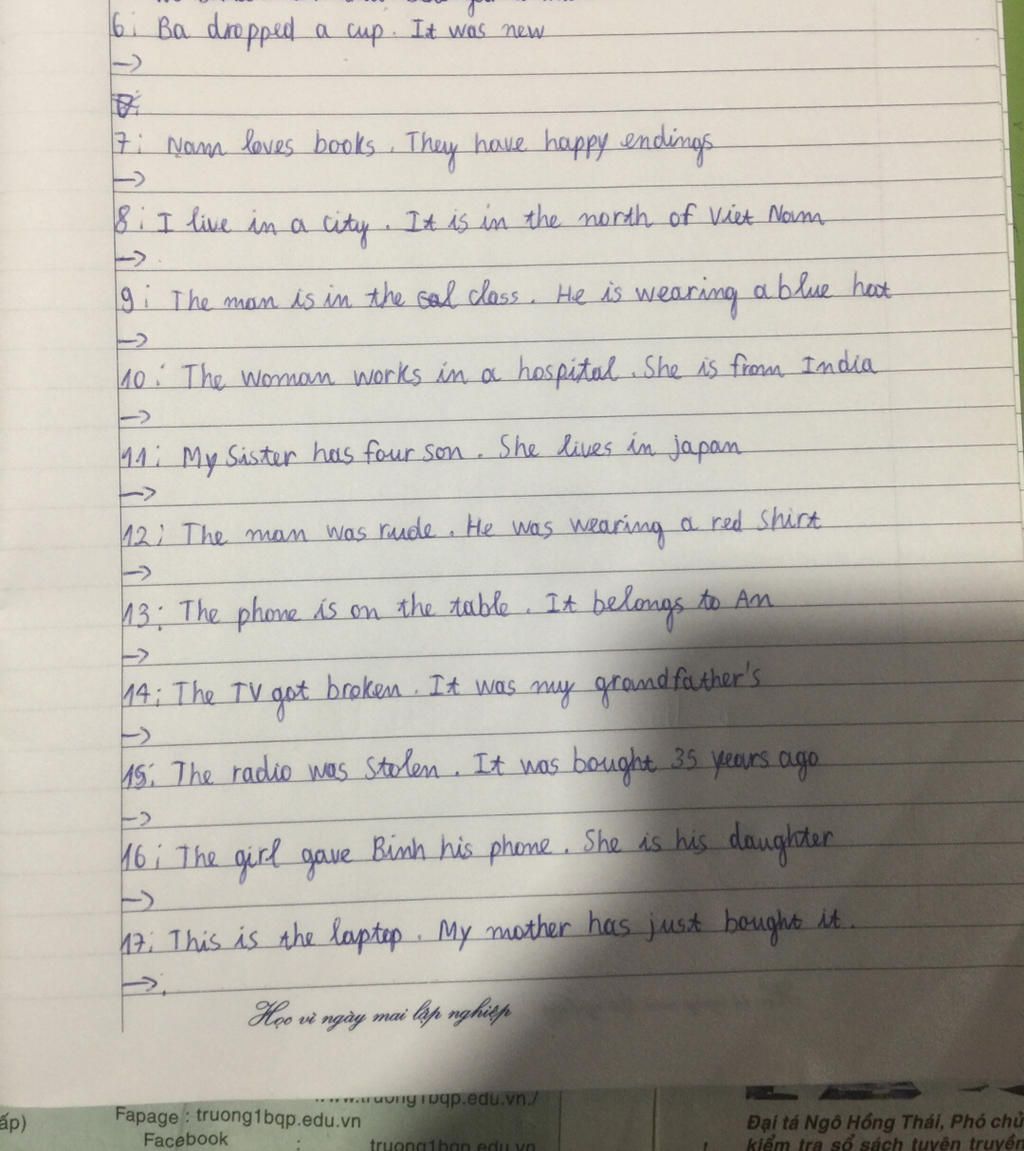 6: Ba dropped a cup. It was new
→
7: Nam loves books. They have happy endings
→
8: I live in a city. It is in the north of Viet Nam
→
9: The man is in the class. He is wearing a blue hat
→
10: The woman works in a hospital. She is from India
→
11: My Sister has four son. She lives in japan
→
12: The man was rude. He was wearing a red shirt
→
13: The phone is on the table. It belongs to An
→
14: The TV got broken. It was my grandfather's
→
15: The radio was stolen. It was bought 35 years ago
→
16: The girl gave Binh his phone. She is his daughter
→
17: This is the laptop. My mother has just bought it.
→.
Học vì ngày mai lập nghiệp
www.truong1bqp.edu.vn./
ấp)
Fapage : truong1bqp.edu.vn
Facebook : truong1bqp.edu.vn
Đại tá Ngô Hồng Thái, Phó chủ
kiểm tra sổ sách tuyên truyền